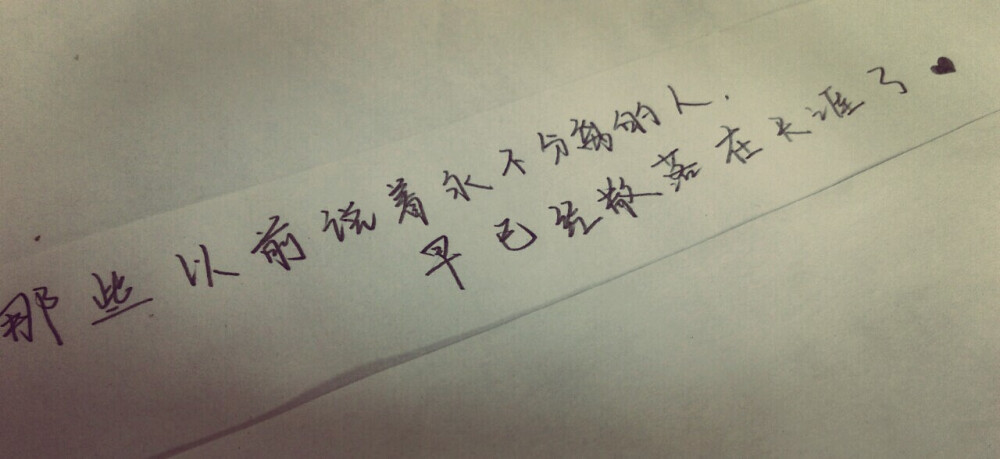 那些以前说着永不分离的人.
早已经散落在天涯了♥